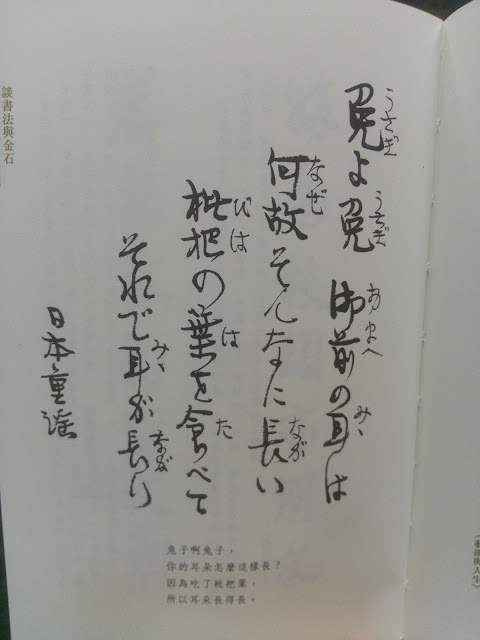 うさぎ うさぎ おまへ みゝ
兔よ兔 御前の耳は
なぜ なが
何故そんなに長い
びは は た
枇杷の葉を食べて
みゝ なが
それで耳が長い
日本童謡
兔子啊兔子，
你的耳朵怎麼這樣長？
因為吃了枇杷葉，
所以耳朵長得長。
談書法與金石
與人生》